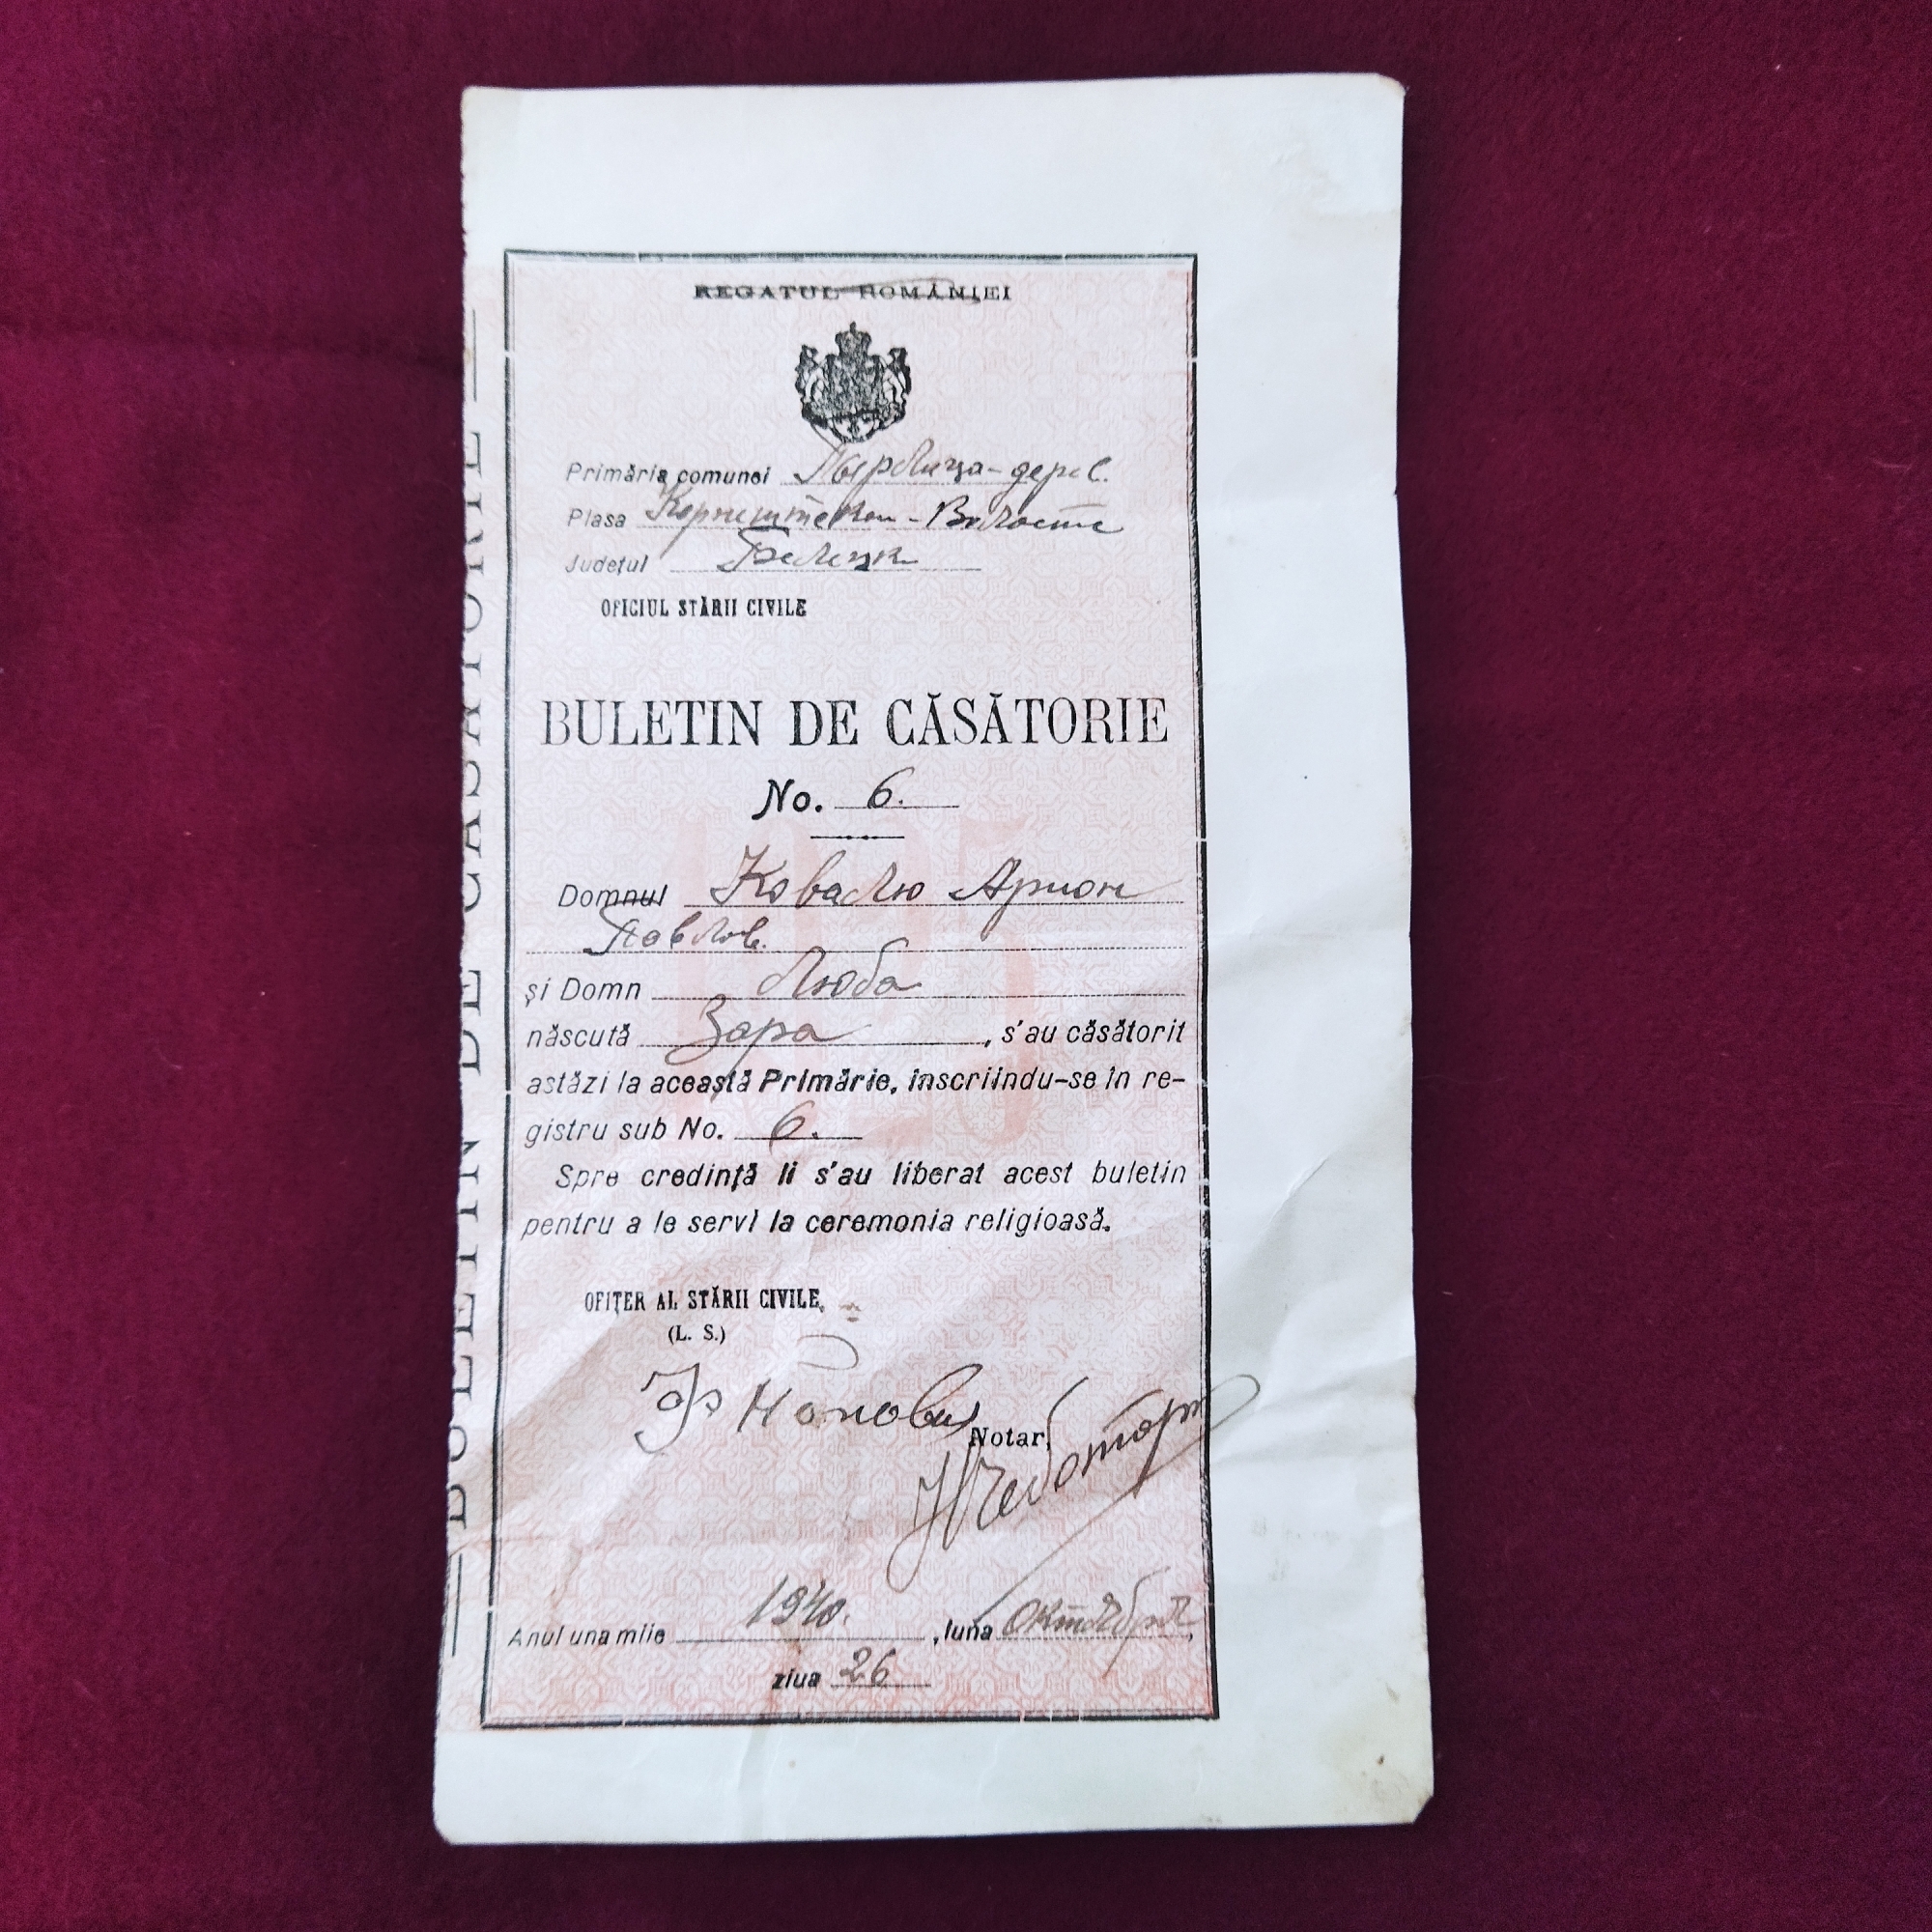 REGATUL ROMÂNIEI
Primăria comunei Пырлица - дерев.
Plasa Корнештская - Волость
Județul Бельцк.
OFICIUL STĂRII CIVILE
BULETIN DE CĂSĂTORIE
No. 6.
Domnul Ковалю Арион
Павлов.
și Domn Люба
născută Зара, s'au căsătorit
astăzi la această Primărie, înscriindu-se în re-
gistru sub No. 6.
Spre credință li s'au liberat acest buletin
pentru a le servi la ceremonia religioasă.
OFIȚER AL STĂRII CIVILE,
(L. S.)
Notar,
Anul una mile 1940., luna Октября,
ziua 26
BULETIN DE CĂSĂTORIE
1925